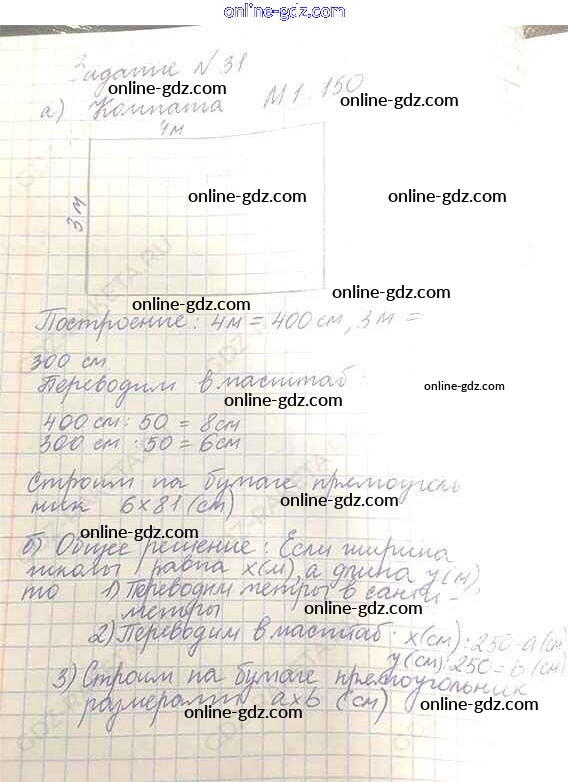 online-gdz.com
Задание №31
online-gdz.com
а) Комната М 1:150
online-gdz.com
4м
3м
online-gdz.com
online-gdz.com
GDZ-RAKETA.RU
online-gdz.com
Построение: 4м = 400 см, 3м =
300 см
Переводим в масштаб:
online-gdz.com
online-gdz.com
400 см : 50 = 8см
300 см : 50 = 6см
online-gdz.com
Строим на бумаге прямоуголь
ник 6х81 (см)
online-gdz.com
online-gdz.com
б) Общее решение: Если ширина
равна х(м), а длина у(м),
online-gdz.com
то 1) Переводим метры в санти-
метры
online-gdz.com
2) Переводим в масштаб: х(см):250=а(см)
у(см):250=b(см)
online-gdz.com
3) Строим на бумаге прямоугольник
размерами ахb (см)
online-gdz.com
online-gdz.com